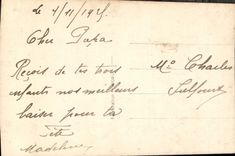 le 7/11/19
Cher Papa
Reçois de tes trois
enfants nos meilleurs
baiser pour ta
Fête
Madeleine
Mr Charles